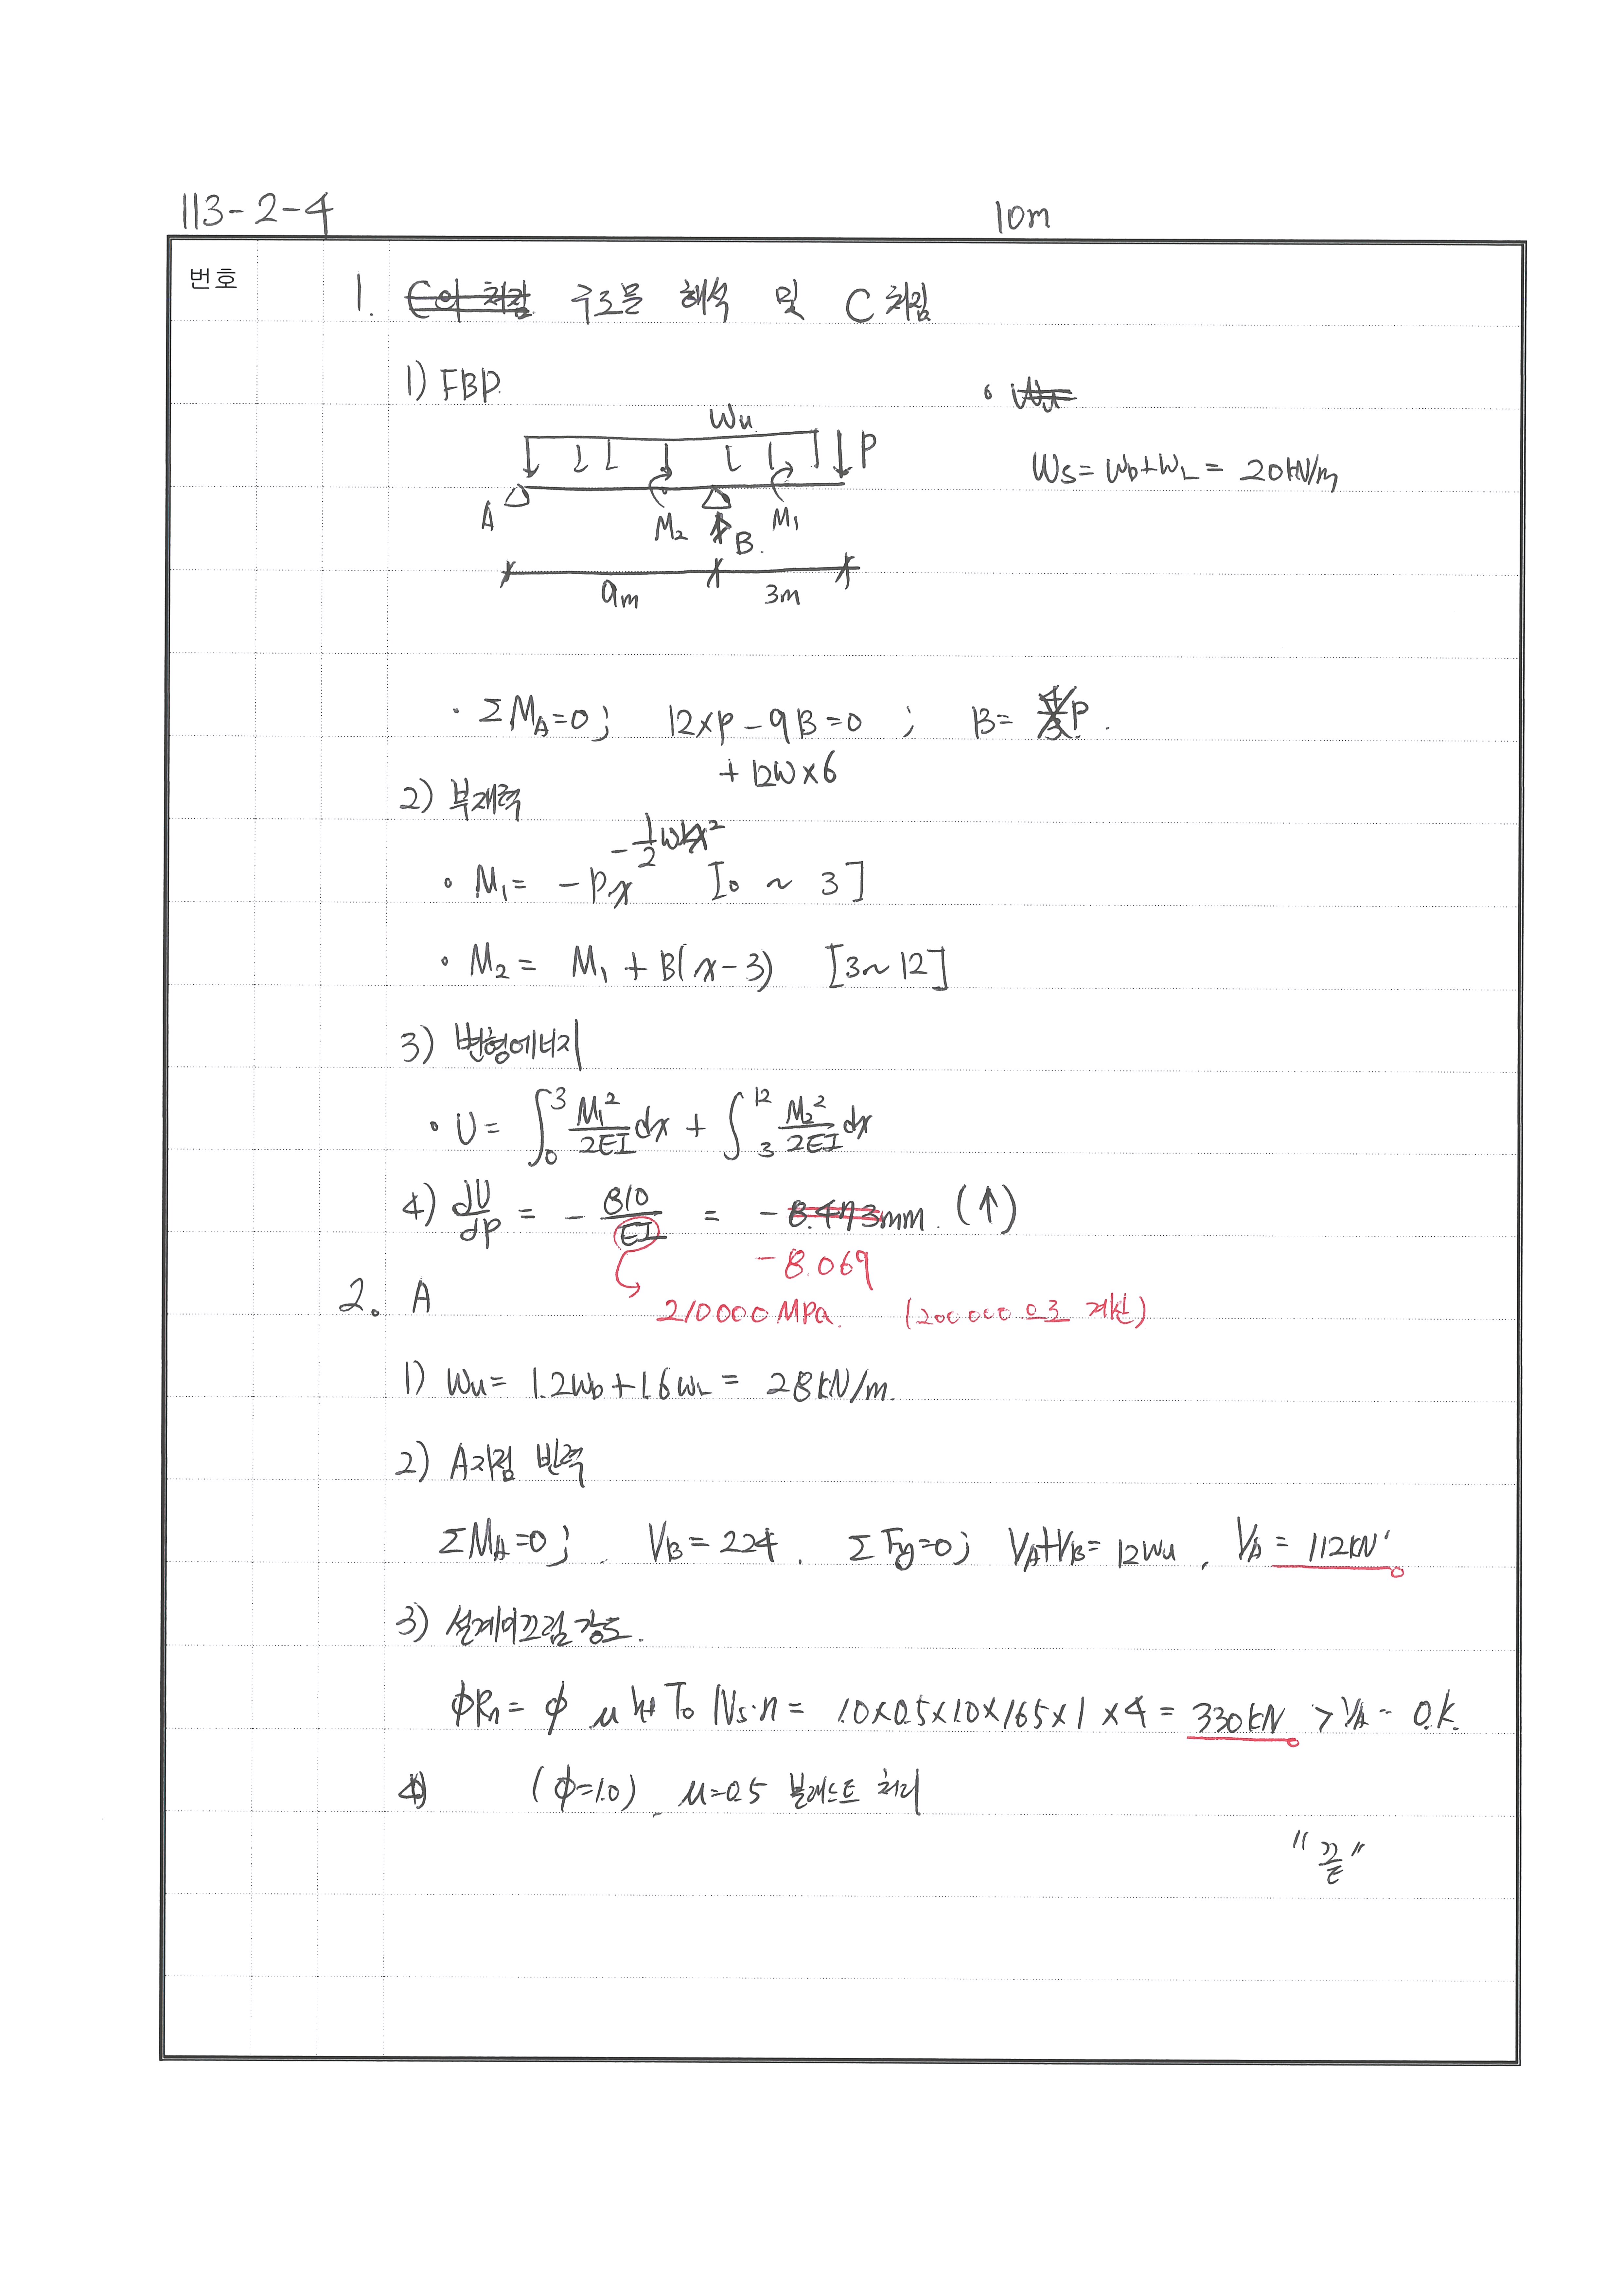 113-2-4
10m
번호
1. C의 처짐 구조물 해석 및 C 처짐
1) FBD
Wu
Wu
P
Ws = WD+WL = 20kN/m
A
M2
B
M1
9m
3m
· ΣMA=0 ; 12×P - 9B=0 ; B= 4/3 P.
+ 12W×6
2) 부재력
∘ M1 = -Px - 1/2 wx² [0 ~ 3]
∘ M2 = M1 + B(x-3) [3~12]
3) 변형에너지
∘ U = ∫₀³ M1²/2EI dx + ∫₃¹² M2²/2EI dx
4) dU/dP = - 810/EI = - 8.473mm. (↑)
-8.069
210000 MPa. (200000으로 계산)
2. A
1) Wu = 1.2WD + 1.6WL = 28kN/m.
2) A지점 반력
ΣMA=0 ; VB = 224. ΣFy=0 ; VA+VB = 12Wu , VA = 112kN
3) 설계미끄럼강도.
ϕRn = ϕ μ hf To Ns·n = 1.0×0.5×1.0×165×1×4 = 330kN > VA - O.K.
4) (ϕ=1.0) , μ=0.5 블래스트 처리
"끝"